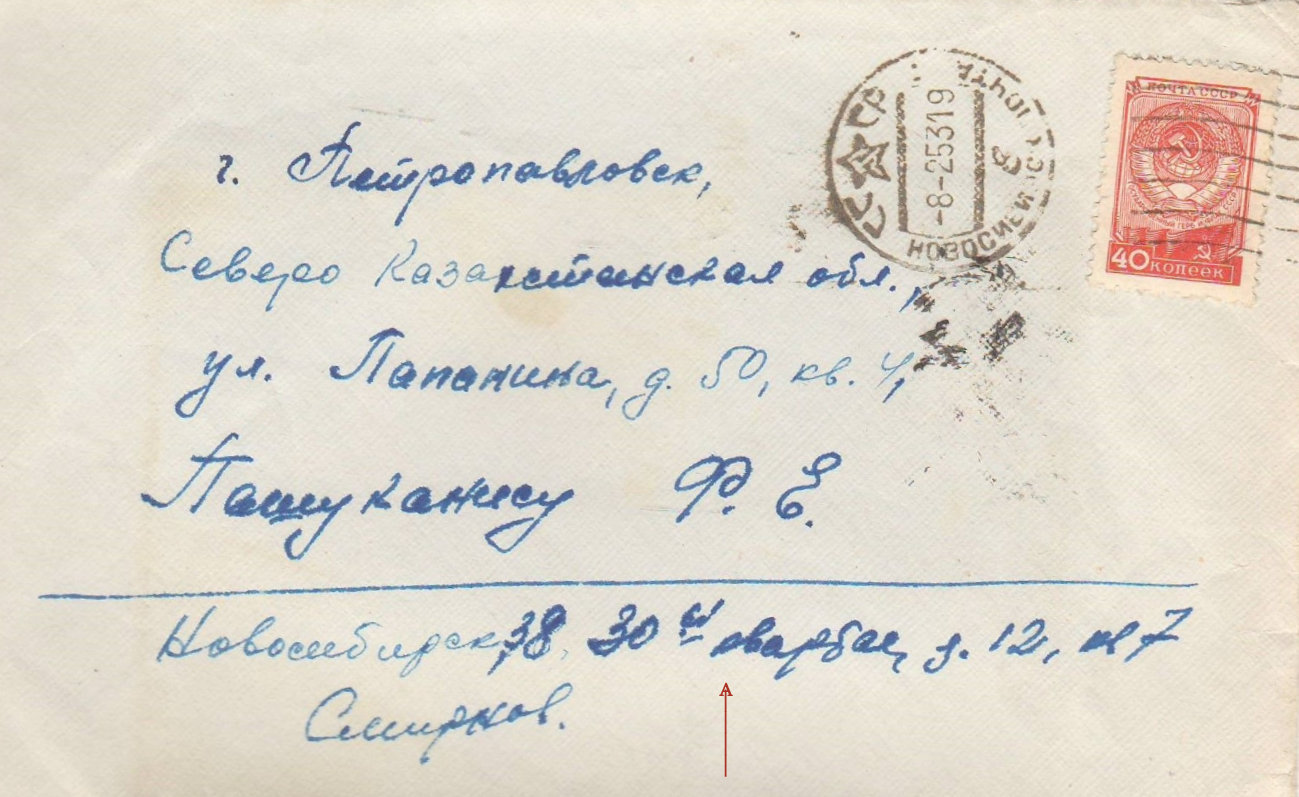 СССР ПОЧТА
-8-25319
НОВОСИБИРСК
ПОЧТА СССР
40 копеек
г. Петропавловск,
Северо Казахстанская обл.,
ул. Папанина, д. 50, кв. 4,
Пашуканису Ф. Е.
Новосибирск, 38, 30 й квартал, д. 12, кв 7
Смирнов.
А